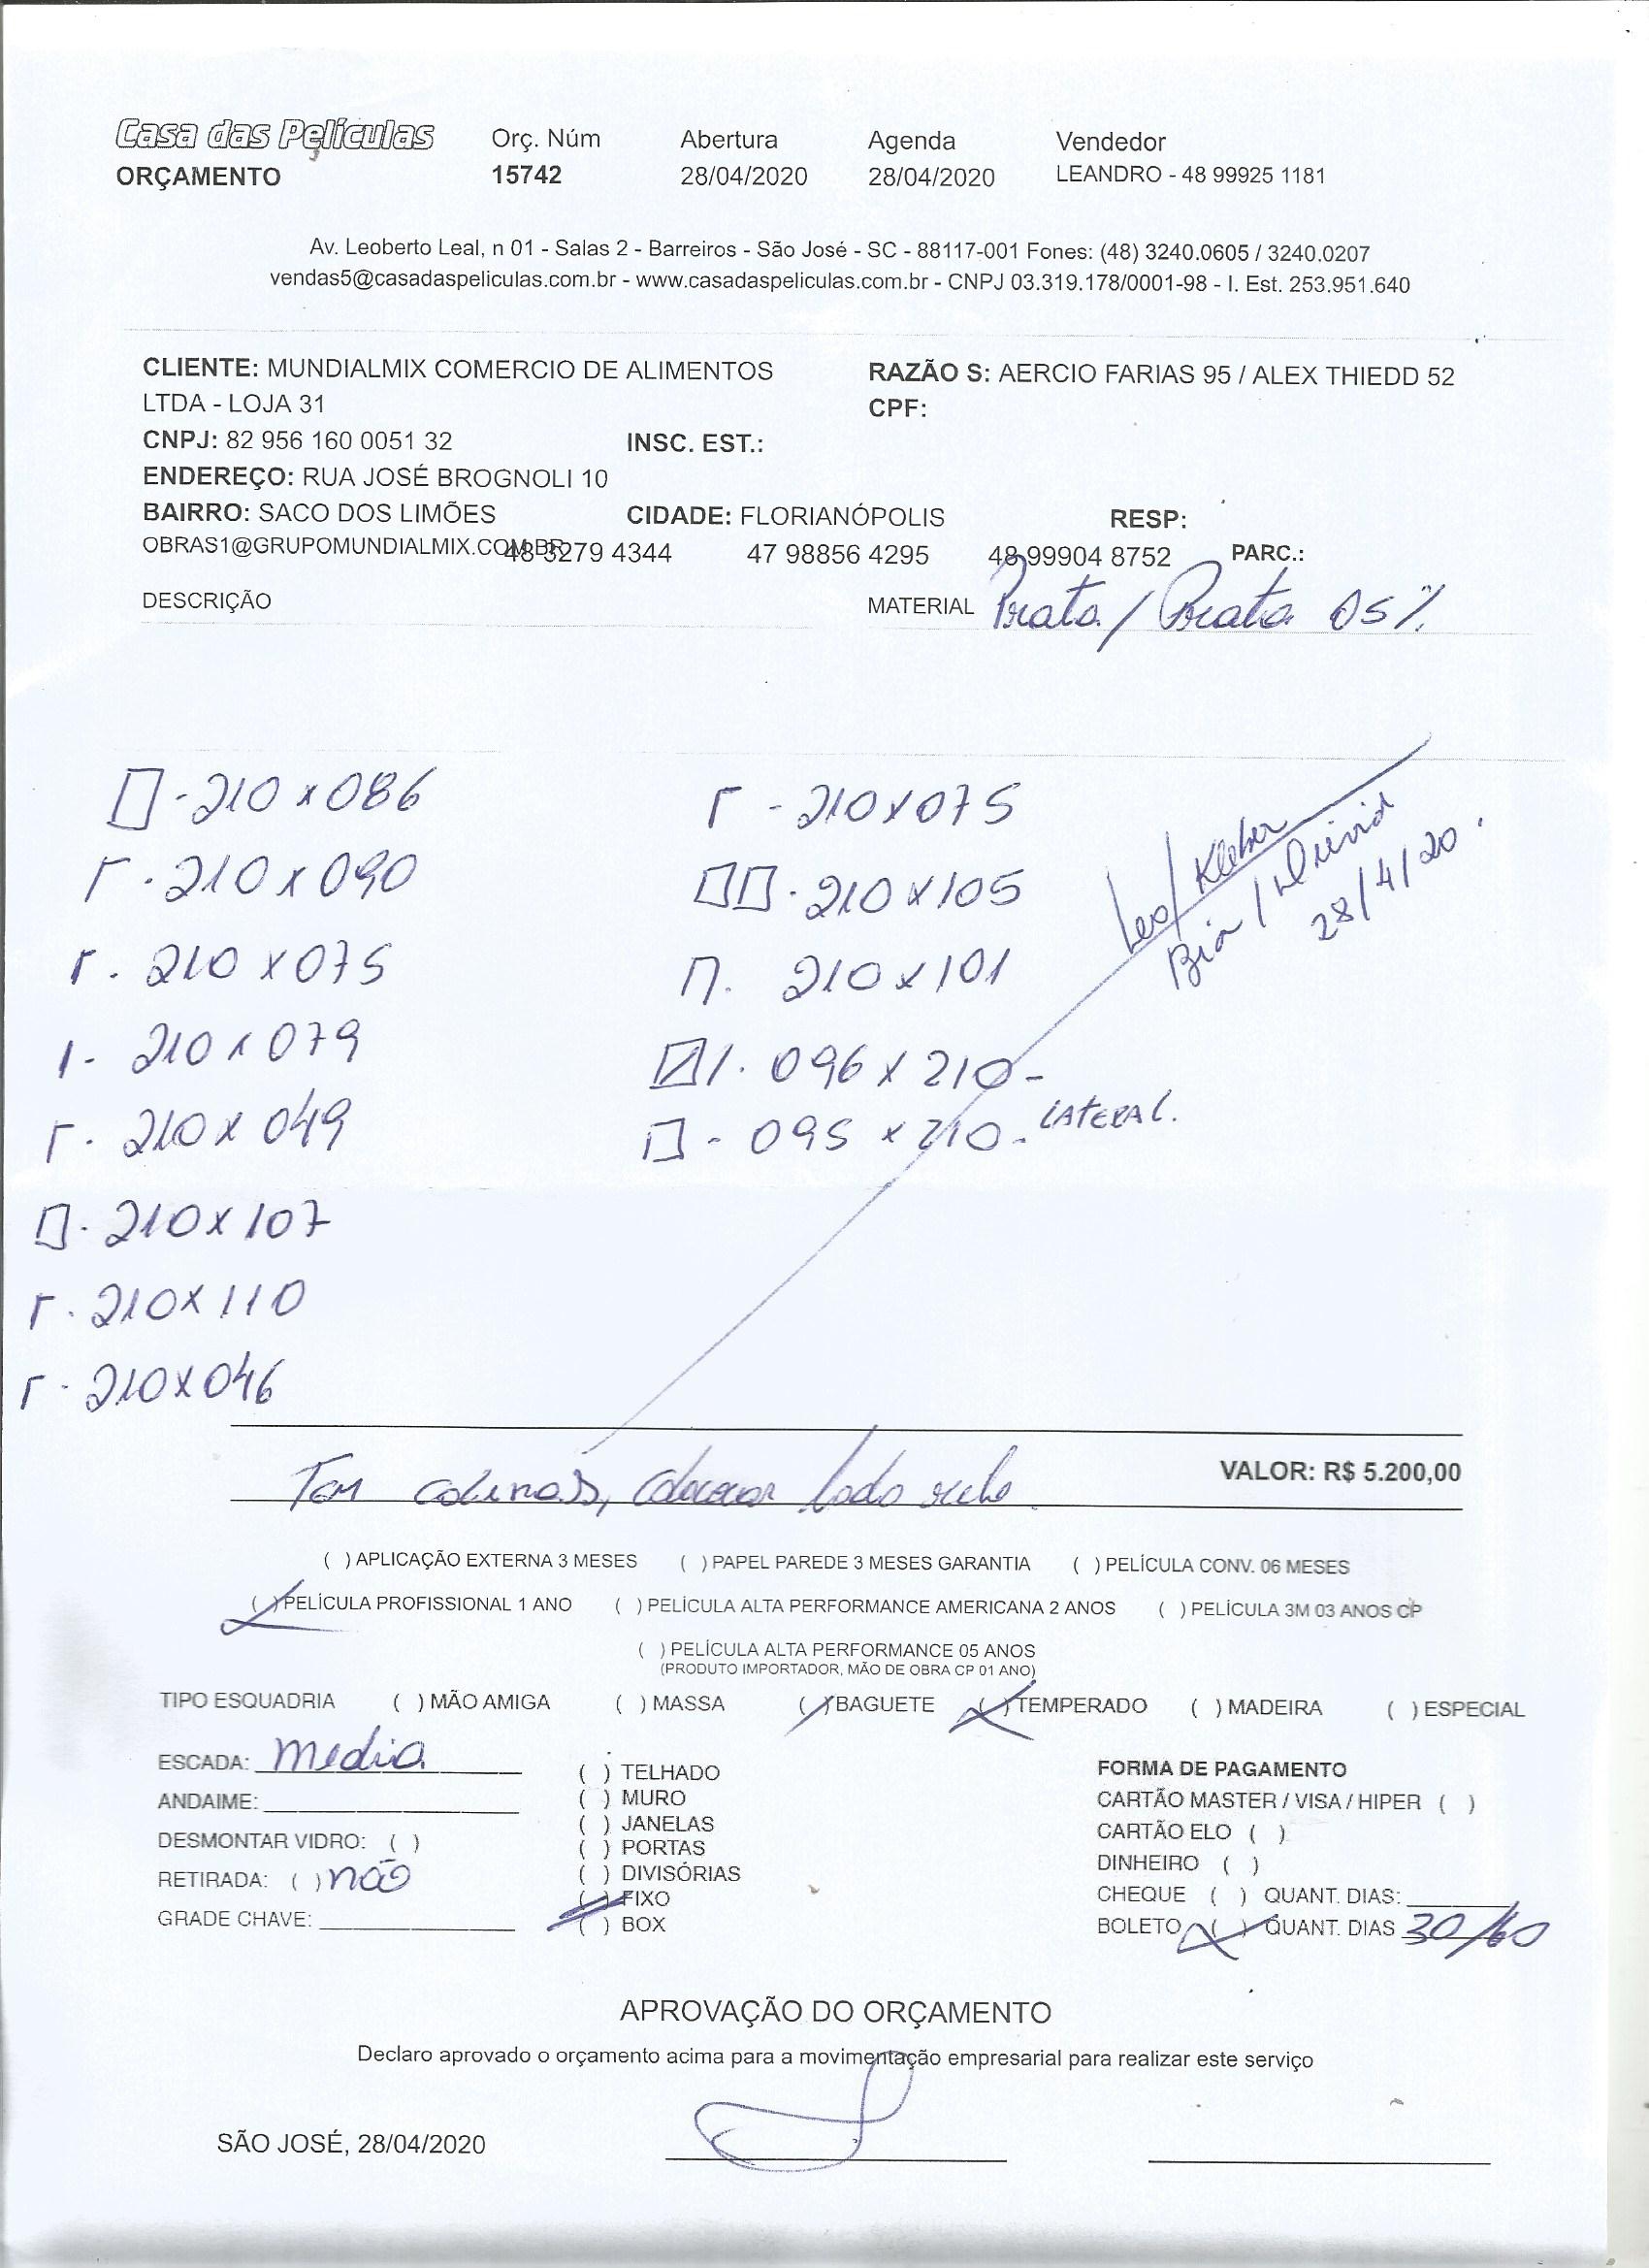 Casa das Películas Orç. Núm Abertura Agenda Vendedor
ORÇAMENTO 15742 28/04/2020 28/04/2020 LEANDRO - 48 99925 1181
Av. Leoberto Leal, n 01 - Salas 2 - Barreiros - São José - SC - 88117-001 Fones: (48) 3240.0605 / 3240.0207
vendas5@casadaspeliculas.com.br - www.casadaspeliculas.com.br - CNPJ 03.319.178/0001-98 - I. Est. 253.951.640
CLIENTE: MUNDIALMIX COMERCIO DE ALIMENTOS RAZÃO S: AERCIO FARIAS 95 / ALEX THIEDD 52
LTDA - LOJA 31 CPF:
CNPJ: 82 956 160 0051 32 INSC. EST.:
ENDEREÇO: RUA JOSÉ BROGNOLI 10
BAIRRO: SACO DOS LIMÕES CIDADE: FLORIANÓPOLIS RESP:
OBRAS1@GRUPOMUNDIALMIX.COM.BR 48 3279 4344 47 98856 4295 48 99904 8752 PARC.:
DESCRIÇÃO MATERIAL Prata / Prata 05%
- 210 x 086
- 210 x 090
- 210 x 075
- 210 x 079
- 210 x 049
- 210 x 107
- 210 x 110
- 210 x 046
- 210 x 075
- 210 x 105
- 210 x 101
- 096 x 210 -
- 095 x 210 - LATERAL.
Leo / Kleber
Bia /
28/4/20.
Tem lado
VALOR: R$ 5.200,00
( ) APLICAÇÃO EXTERNA 3 MESES ( ) PAPEL PAREDE 3 MESES GARANTIA ( ) PELÍCULA CONV. 06 MESES
( ) PELÍCULA PROFISSIONAL 1 ANO ( ) PELÍCULA ALTA PERFORMANCE AMERICANA 2 ANOS ( ) PELÍCULA 3M 03 ANOS CP
( ) PELÍCULA ALTA PERFORMANCE 05 ANOS
(PRODUTO IMPORTADOR, MÃO DE OBRA CP 01 ANO)
TIPO ESQUADRIA ( ) MÃO AMIGA ( ) MASSA ( ) BAGUETE ( ) TEMPERADO ( ) MADEIRA ( ) ESPECIAL
ESCADA: media
ANDAIME:
DESMONTAR VIDRO: ( )
RETIRADA: ( ) não
GRADE CHAVE:
( ) TELHADO
( ) MURO
( ) JANELAS
( ) PORTAS
( ) DIVISÓRIAS
( ) FIXO
( ) BOX
FORMA DE PAGAMENTO
CARTÃO MASTER / VISA / HIPER ( )
CARTÃO ELO ( )
DINHEIRO ( )
CHEQUE ( ) QUANT. DIAS:
BOLETO ( ) QUANT. DIAS 30/60
APROVAÇÃO DO ORÇAMENTO
Declaro aprovado o orçamento acima para a movimentação empresarial para realizar este serviço
SÃO JOSÉ, 28/04/2020